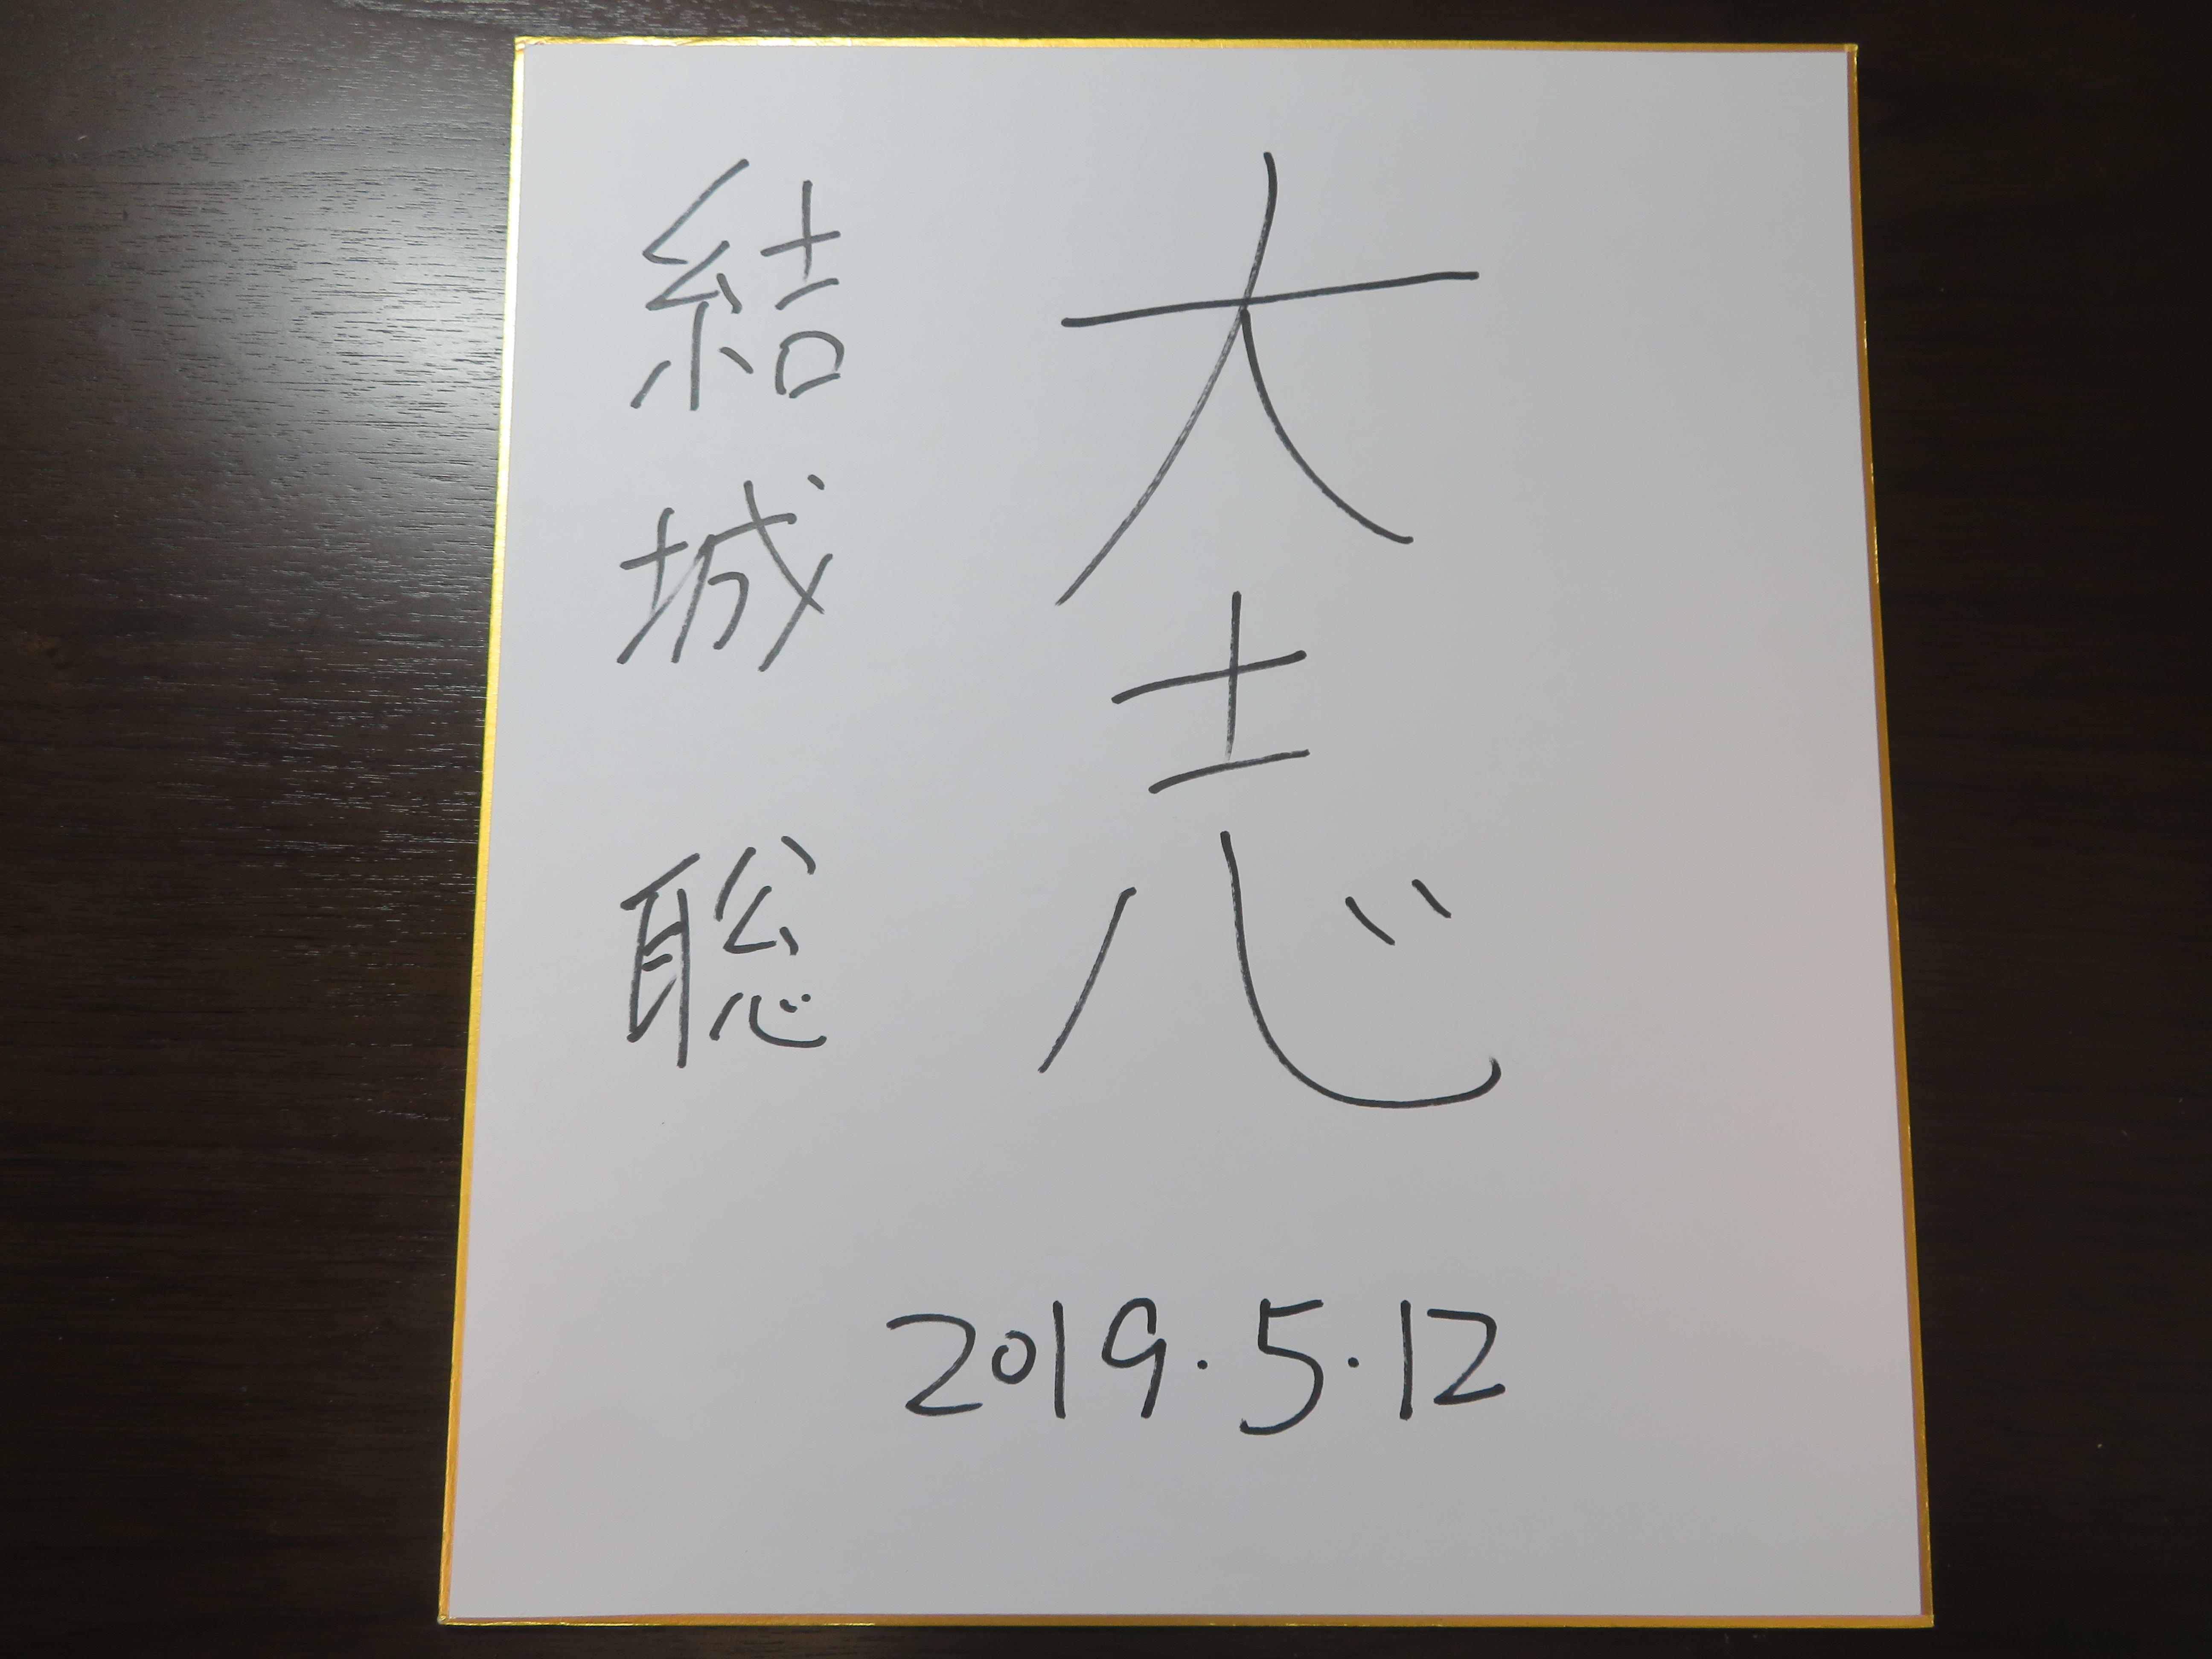 大志
結城 聡
2019.5.12